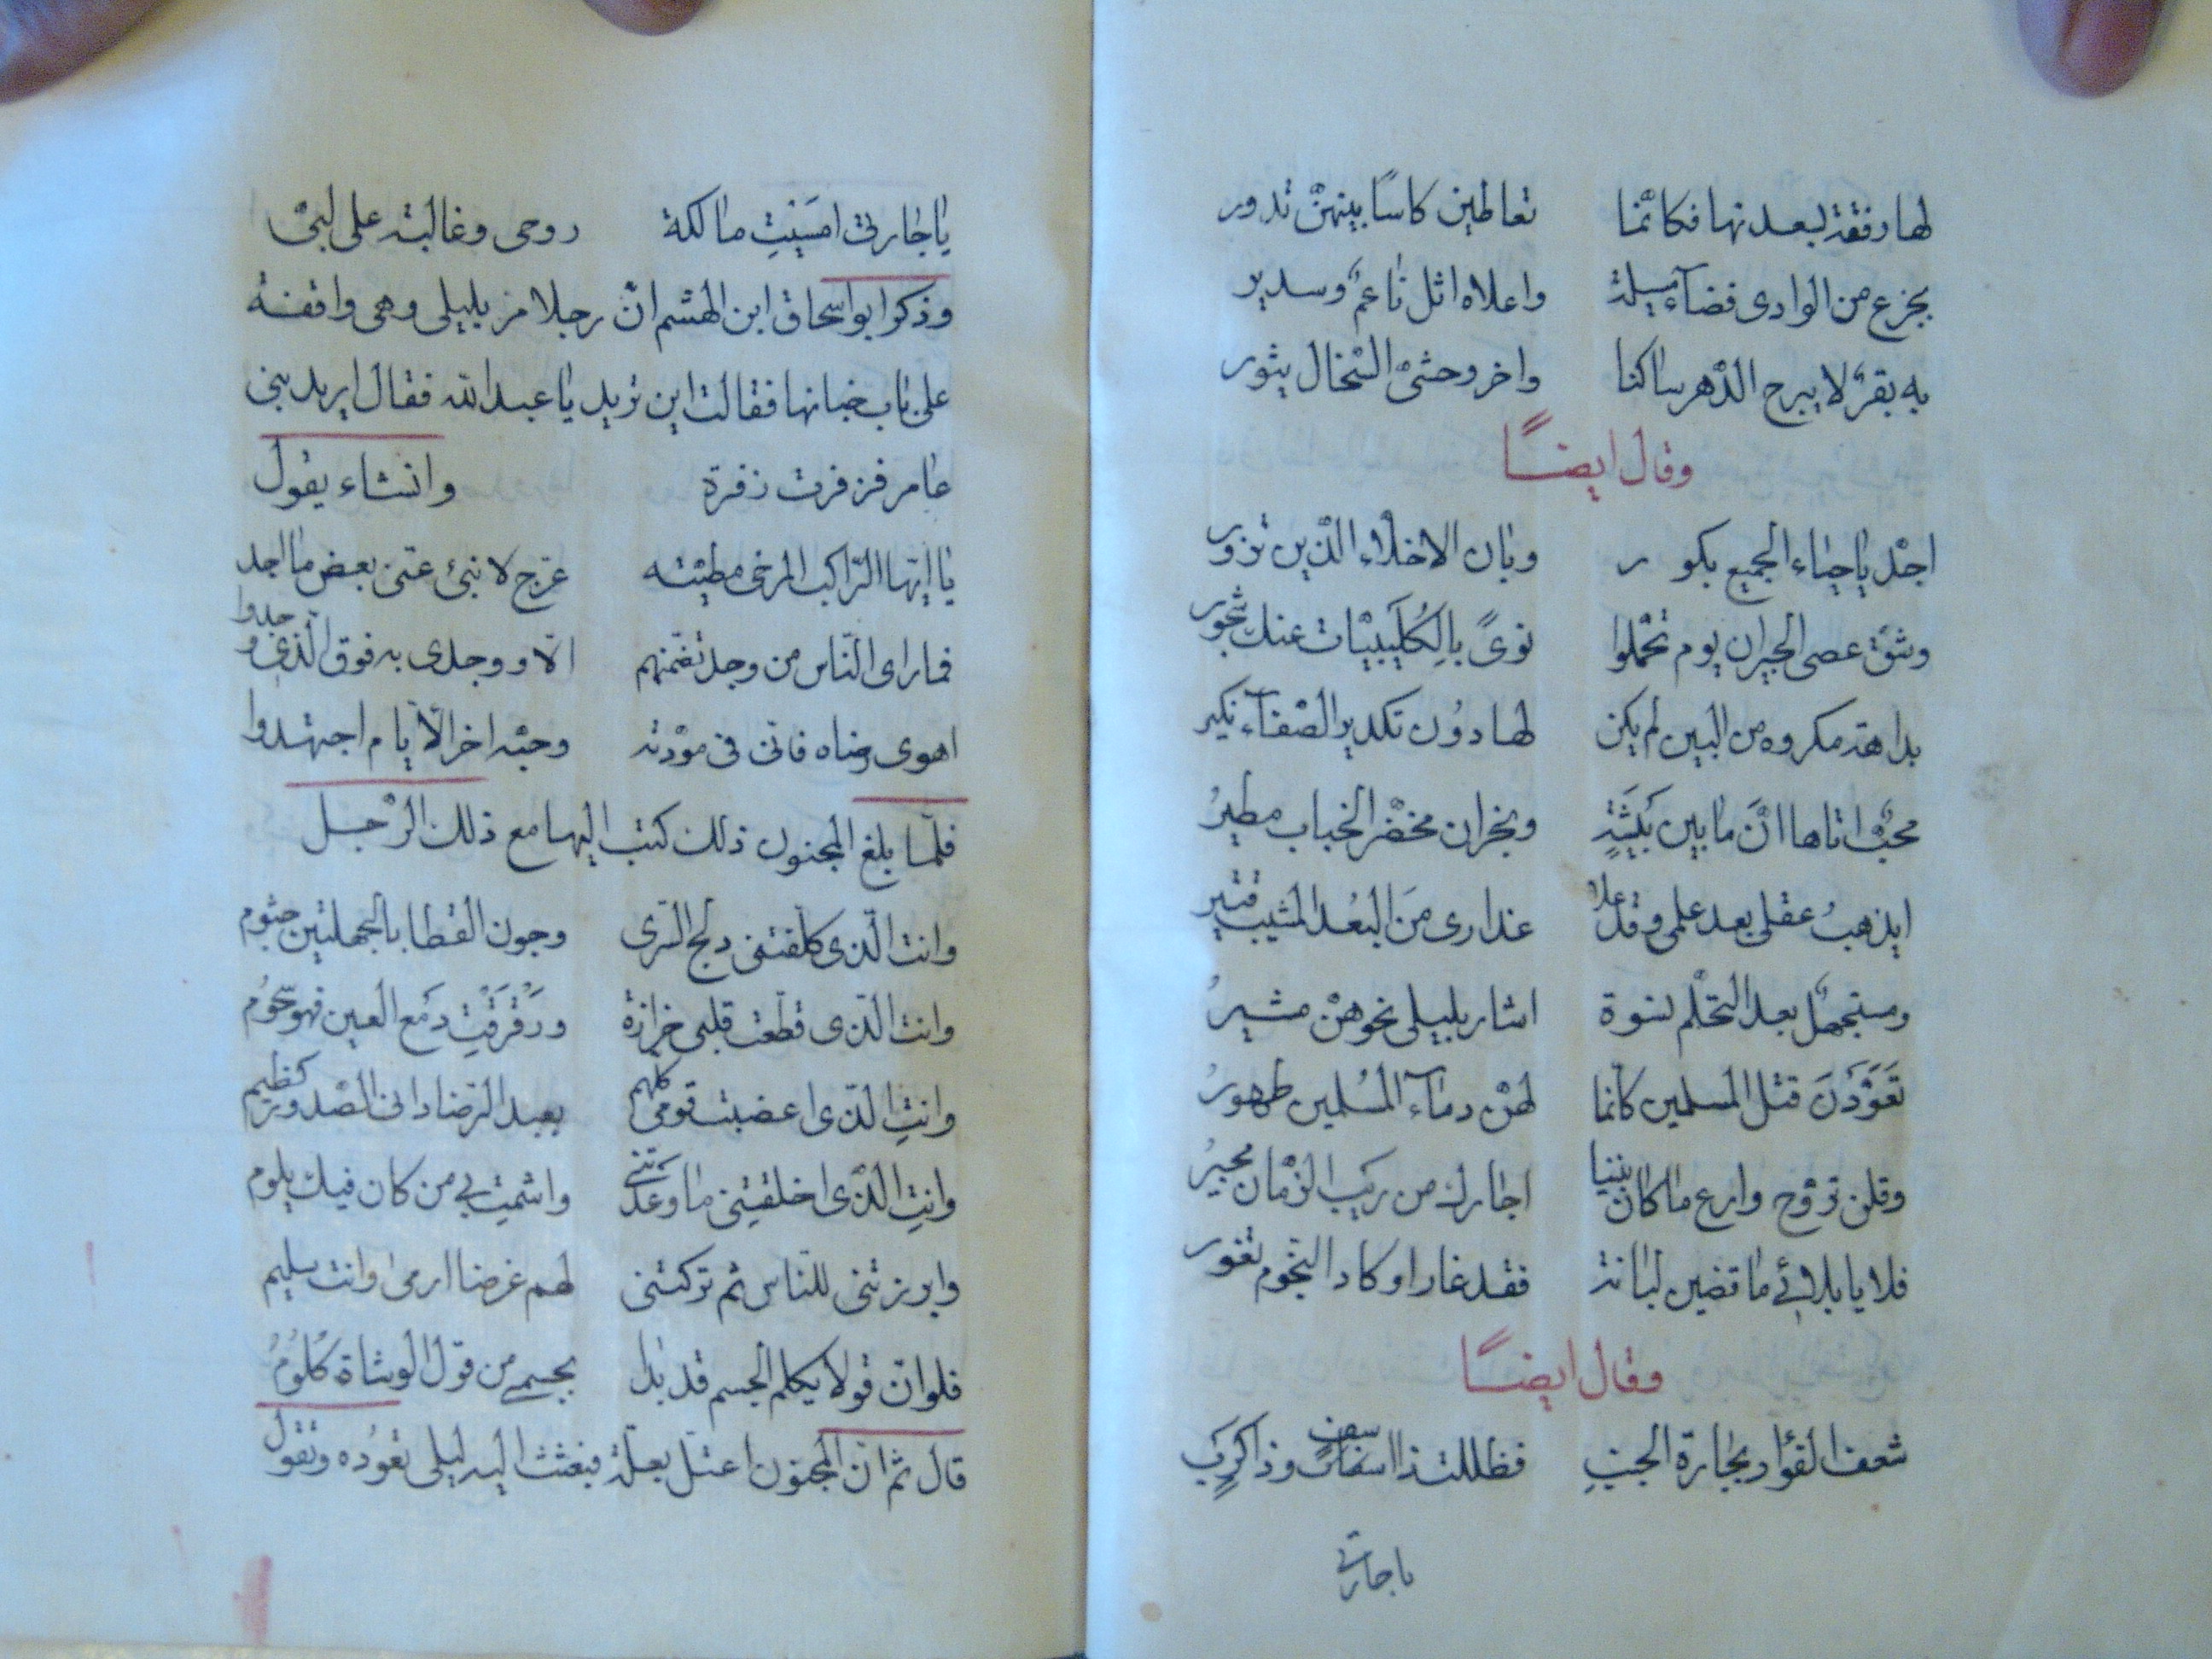 لها رفقة بعد نها فكانّما تعاطين كاسًا بينهنّ تدور
بجزع من الوادى فضآء مسيلة واعلاه اثل ناعمٌ وسدير
به بقرٌ لا يبرح الدّهر ساكنا واخر وحشىّ السّخال يثور
وقال ايضًا
اجدّ يا جياء الجميع بكور وبان الاخلّاء الذين تزور
وشقّ عصى الجيران يوم تحمّلوا نوىً بالكُلَيبيّات عنك شجور
بداهة مكروه من البين لم يكن لها دوُن تكدير الصّفآء نكير
محبٌّ اتاها انّ ما بين بَيشَةٍ ونجران مخضّر الجناب مطيرُ
ايذهبُ عقلى بعد علمى وقد علا عذارى مَن البُعد المشيب قتير
ومستجهل بعد التحلّم نسوة اشار بليلى نحوهنّ مشيرُ
تعَوّدَنَ قتل المسلمين كانّما لهنّ دمآء المُسلمين طهورُ
وقلن تروّح وارع ما كان بيننا اجارك من ريَب الزّمان مجيرُ
فلا يا بلائے ما قضين لبانة فقد غارا وكاد النّجوم تغور
وقال ايضًا
شعف الفؤاد بجارة الجنبِ فظللت ذا اسفٍ وذا كربٍ
يا جارتى
يا جارتى امسَيْتِ مالكة روحى وغالبة على لبّى
وذكر ابو اسحاق ابن الهشم انّ رجلا مر بليلى وهى واقفة
على باب خبائها فقالت اين تريد يا عبد الله فقال اريد بنى
عامر فزفرت زفرة وانشاء يقول
يا ايّها الرّاكب المزجى مطيّته عرّج لانبئ عنّى بعض ما اجد
فما راى النّاس من وجد تضمّنهم الّا ووجدى به فوق الّذى وجدوا
اهوى رضاه فانّى فى مودّته وحبّه اخر الايّام اجتهدوا
فلمّا بلغ المجنون ذلك كتب اليها مع ذلك الرّجل
وانت الّذى كلّفتنى دلج السّرى وجون القطا بالجهلتين جثوم
وانت الّذى قطّعت قلبى حزازة ورَقرَقْتِ دَمع العين فهو سجوُم
وانتِ الّذى اغضبت قومى كلهم بعيد الرّضا دانى الصّدور كظيم
وانتِ الّذى اخلفتِنى ما وعدتنى واشمتِ بى من كان فيك يلوم
وابرزتنى للنّاس ثم تركتنى لهم غرضا ارمى وانت سليم
فلو انّ قولا يكلم الجسم قد بدا بجسمى من قول الوشاة كُلوُمُ
قال ثم انّ المجنون اعتلّ بعلّة فبعثت اليه ليلى تعوُده وتقول